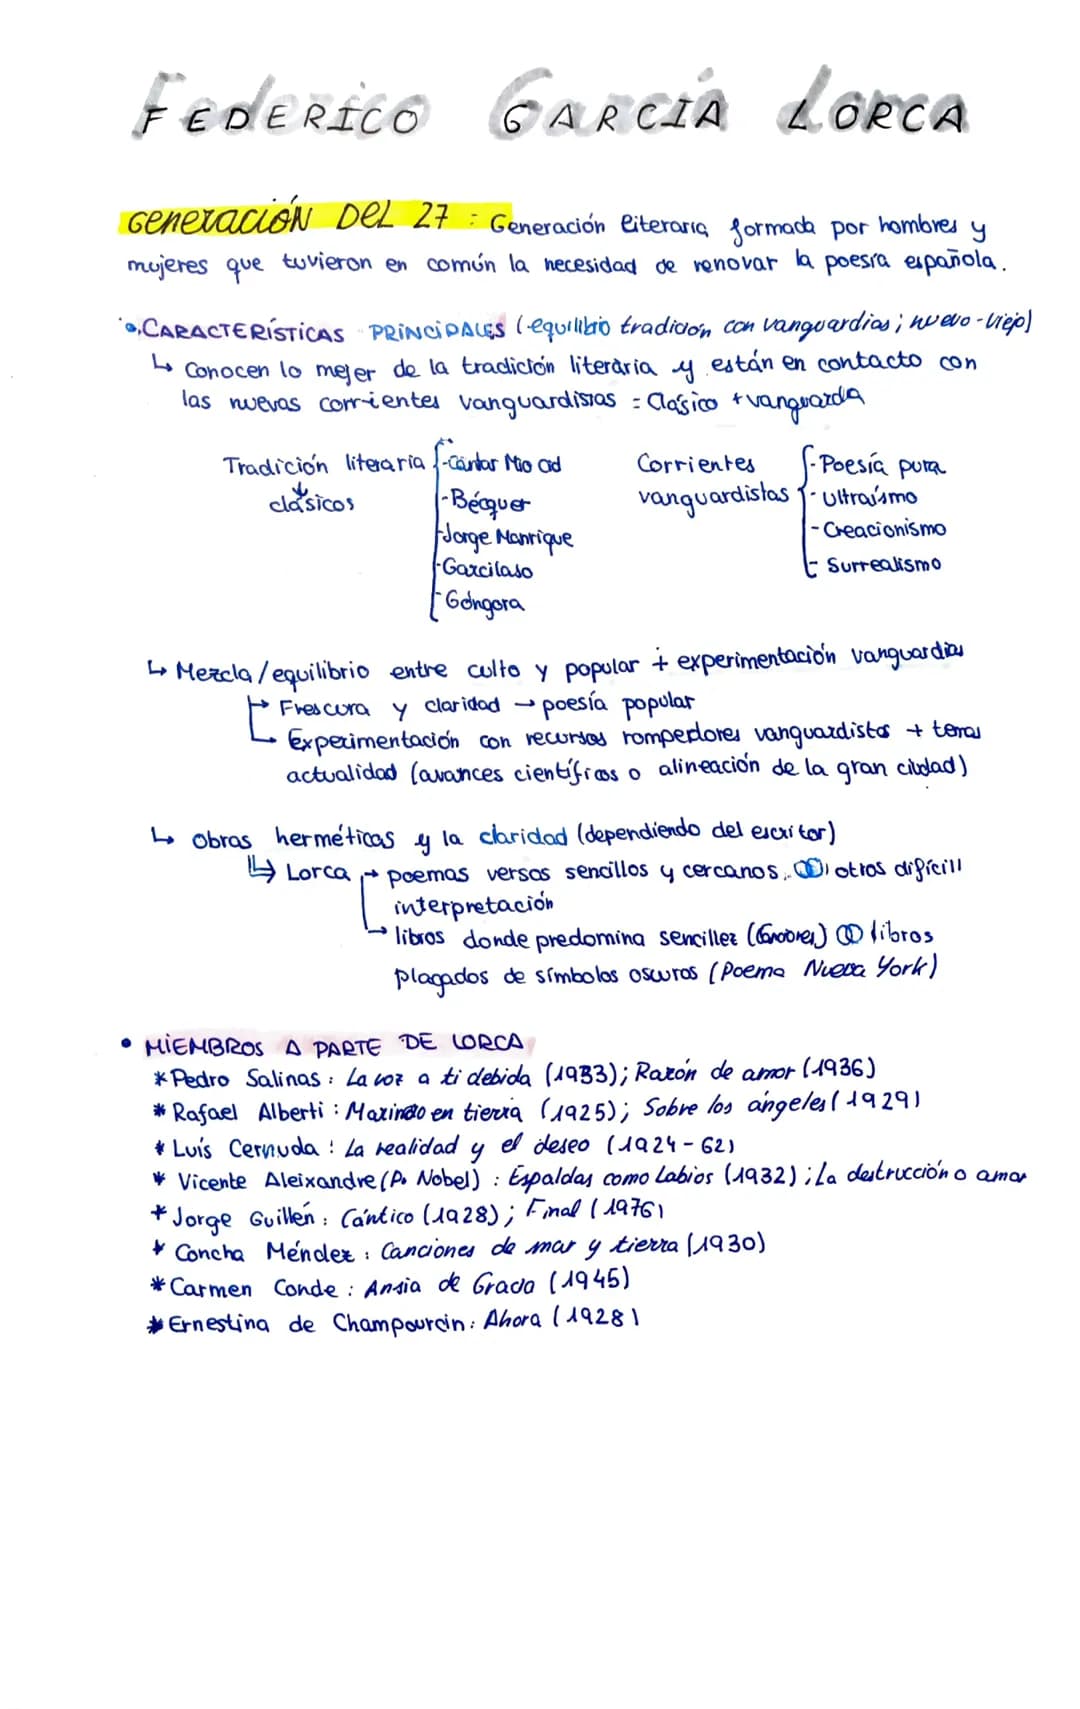 Federico García Lorca
FEDERICO GARCÍA LORCA
Generación Del 27: Generación literaria formada por hombres y
mujeres que tuvieron en común la necesidad de renovar la poesía española.
CARACTERÍSTICAS PRINCIPALES (equilibrio tradición con vanguardias; nuevo-viejo)
↳ Conocen lo mejer de la tradición literaria y están en contacto con
las nuevas corrientes vanguardistas = Clásico + vanguarda
Tradición literaria
↓
clásicos
-Cantar Mio Cid
-Bécquer
-Jorge Manrique
-Garcilaso
-Góngora
Corrientes
vanguardistas
-Poesía pura
-Ultraísmo
-Creacionismo
-Surrealismo
↳ Mezcla/equilibrio entre culto y popular + experimentación vanguardias
↳ Frescura y claridad → poesía popular
↳ Experimentación con recursos rompedores vanguardistas + temas
actualidad (avances científicos o alineación de la gran ciudad)
↳ Obras herméticas y la claridad (dependiendo del escritor)
↳ Lorca → poemas versos sencillos y cercanos, otros difícill
interpretación
→ libros donde predomina sencillez (Canciones) libros
plagados de símbolos oscuros (Poema Nueva York)
• MIEMBROS A PARTE DE LORCA
* Pedro Salinas: La voz a ti debida (1933); Razón de amor (1936)
* Rafael Alberti: Marinero en tierra (1925); Sobre los ángeles (1929)
* Luís Cernuda: La realidad y el deseo (1924-62)
* Vicente Aleixandre (P. Nobel): Espaldas como Labios (1932); La destrucción o amor
* Jorge Guillén: Cántico (1928); Final (1976)
* Concha Méndez: Canciones de mar y tierra (1930)
* Carmen Conde: Ansia de Gracia (1945)
* Ernestina de Champourcin: Ahora (1928)